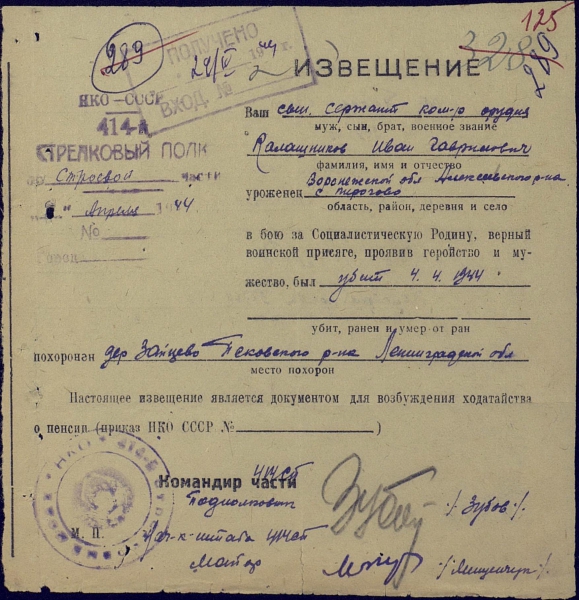 125
289
328
289
ПОЛУЧЕНО
24/V 1944 г.
ВХОД №
ИЗВЕЩЕНИЕ
НКО-СССР
414-й
СТРЕЛКОВЫЙ ПОЛК
по Строевой части
Апреля 1944
№
Город
Ваш сын. сержант ком-р орудия
муж, сын, брат, военное звание
Калашников Иван Гаврилович
фамилия, имя и отчество
Воронежской обл Алексеевского р-на
уроженец с
область, район, деревня и село
в бою за Социалистическую Родину, верный
воинской присяге, проявив геройство и му-
жество, был убит 4.4.1944
убит, ранен и умер от ран
похоронен дер Зайцево Псковского р-на Ленинградской обл
место похорон
Настоящее извещение является документом для возбуждения ходатайства
о пенсии (приказ НКО СССР № )
НКО 414-й
414СП
Командир части
Подполковник Зубов /Зубов/.
М. П.
Нач-к штаба 414СП
Майор